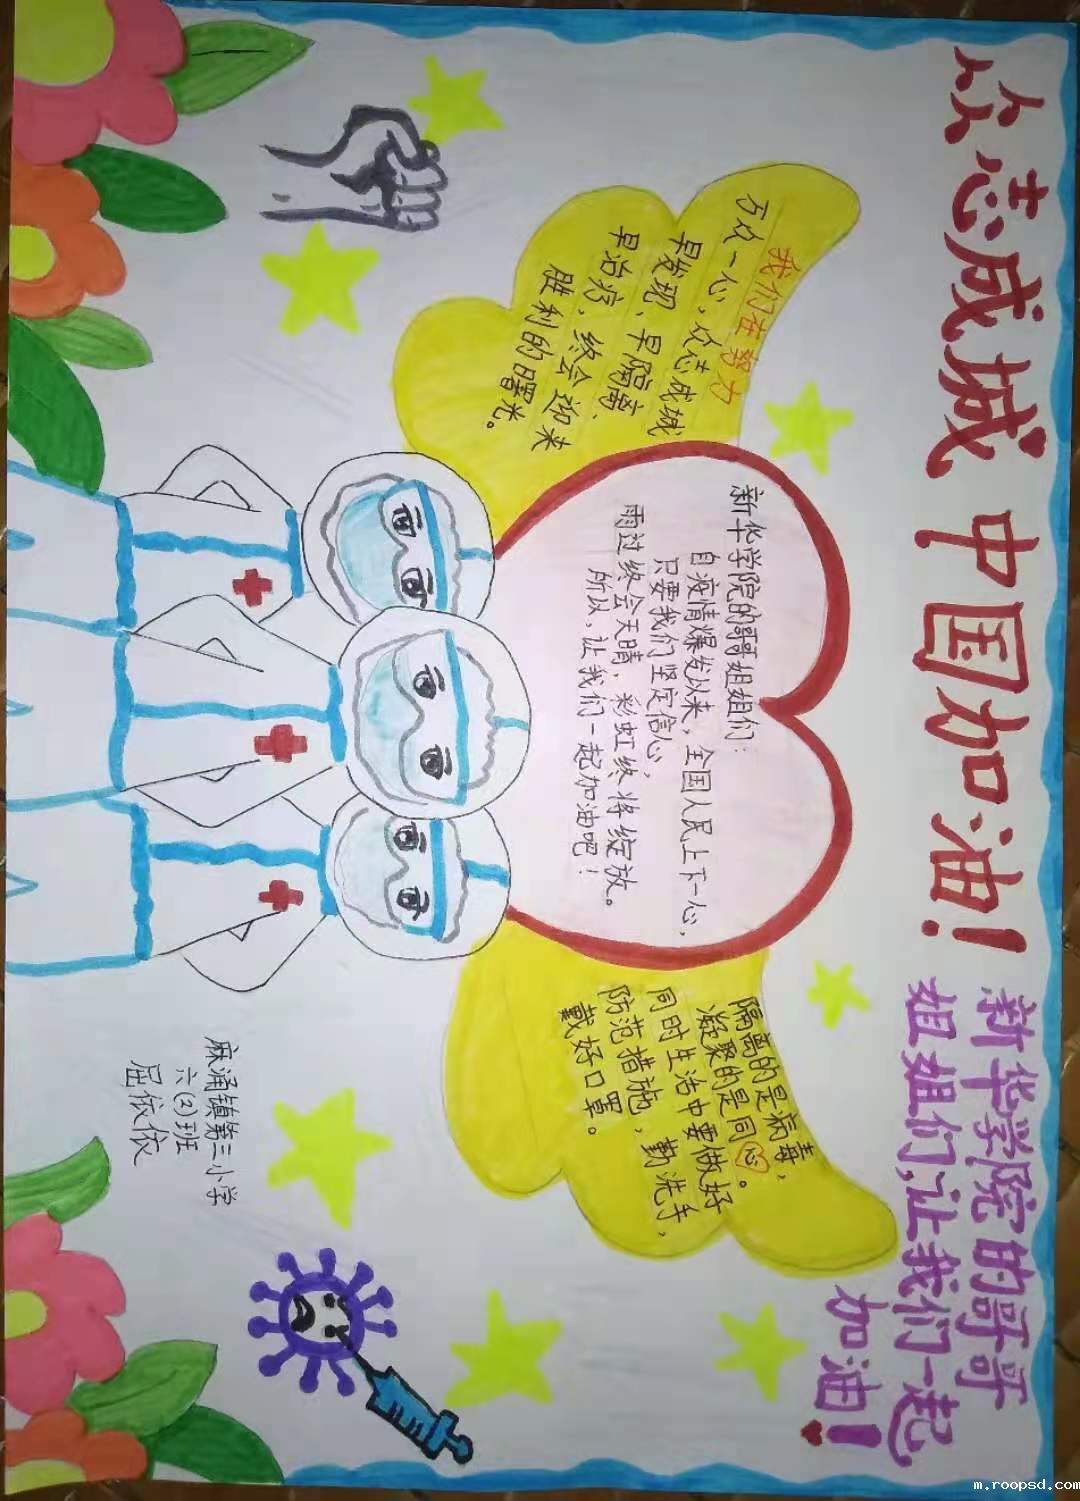 众志成城 中国加油!
新华学院的哥哥
姐姐们,让我们一起
加油!
我们在努力
万众一心,众志成城
早发现、早隔离、
早治疗,终会迎来
胜利的曙光。
新华学院的哥哥姐姐们:
自疫情爆发以来,全国人民上下一心,
只要我们坚定信心,
雨过终会天晴,彩虹终将绽放。
所以,让我们一起加油吧!
隔离的是病毒,
凝聚的是同心。
同时生活中要做好
防范措施,勤洗手,
戴好口罩。
麻涌镇第三小学
六(2)班
屈依依
m.roopsd.com